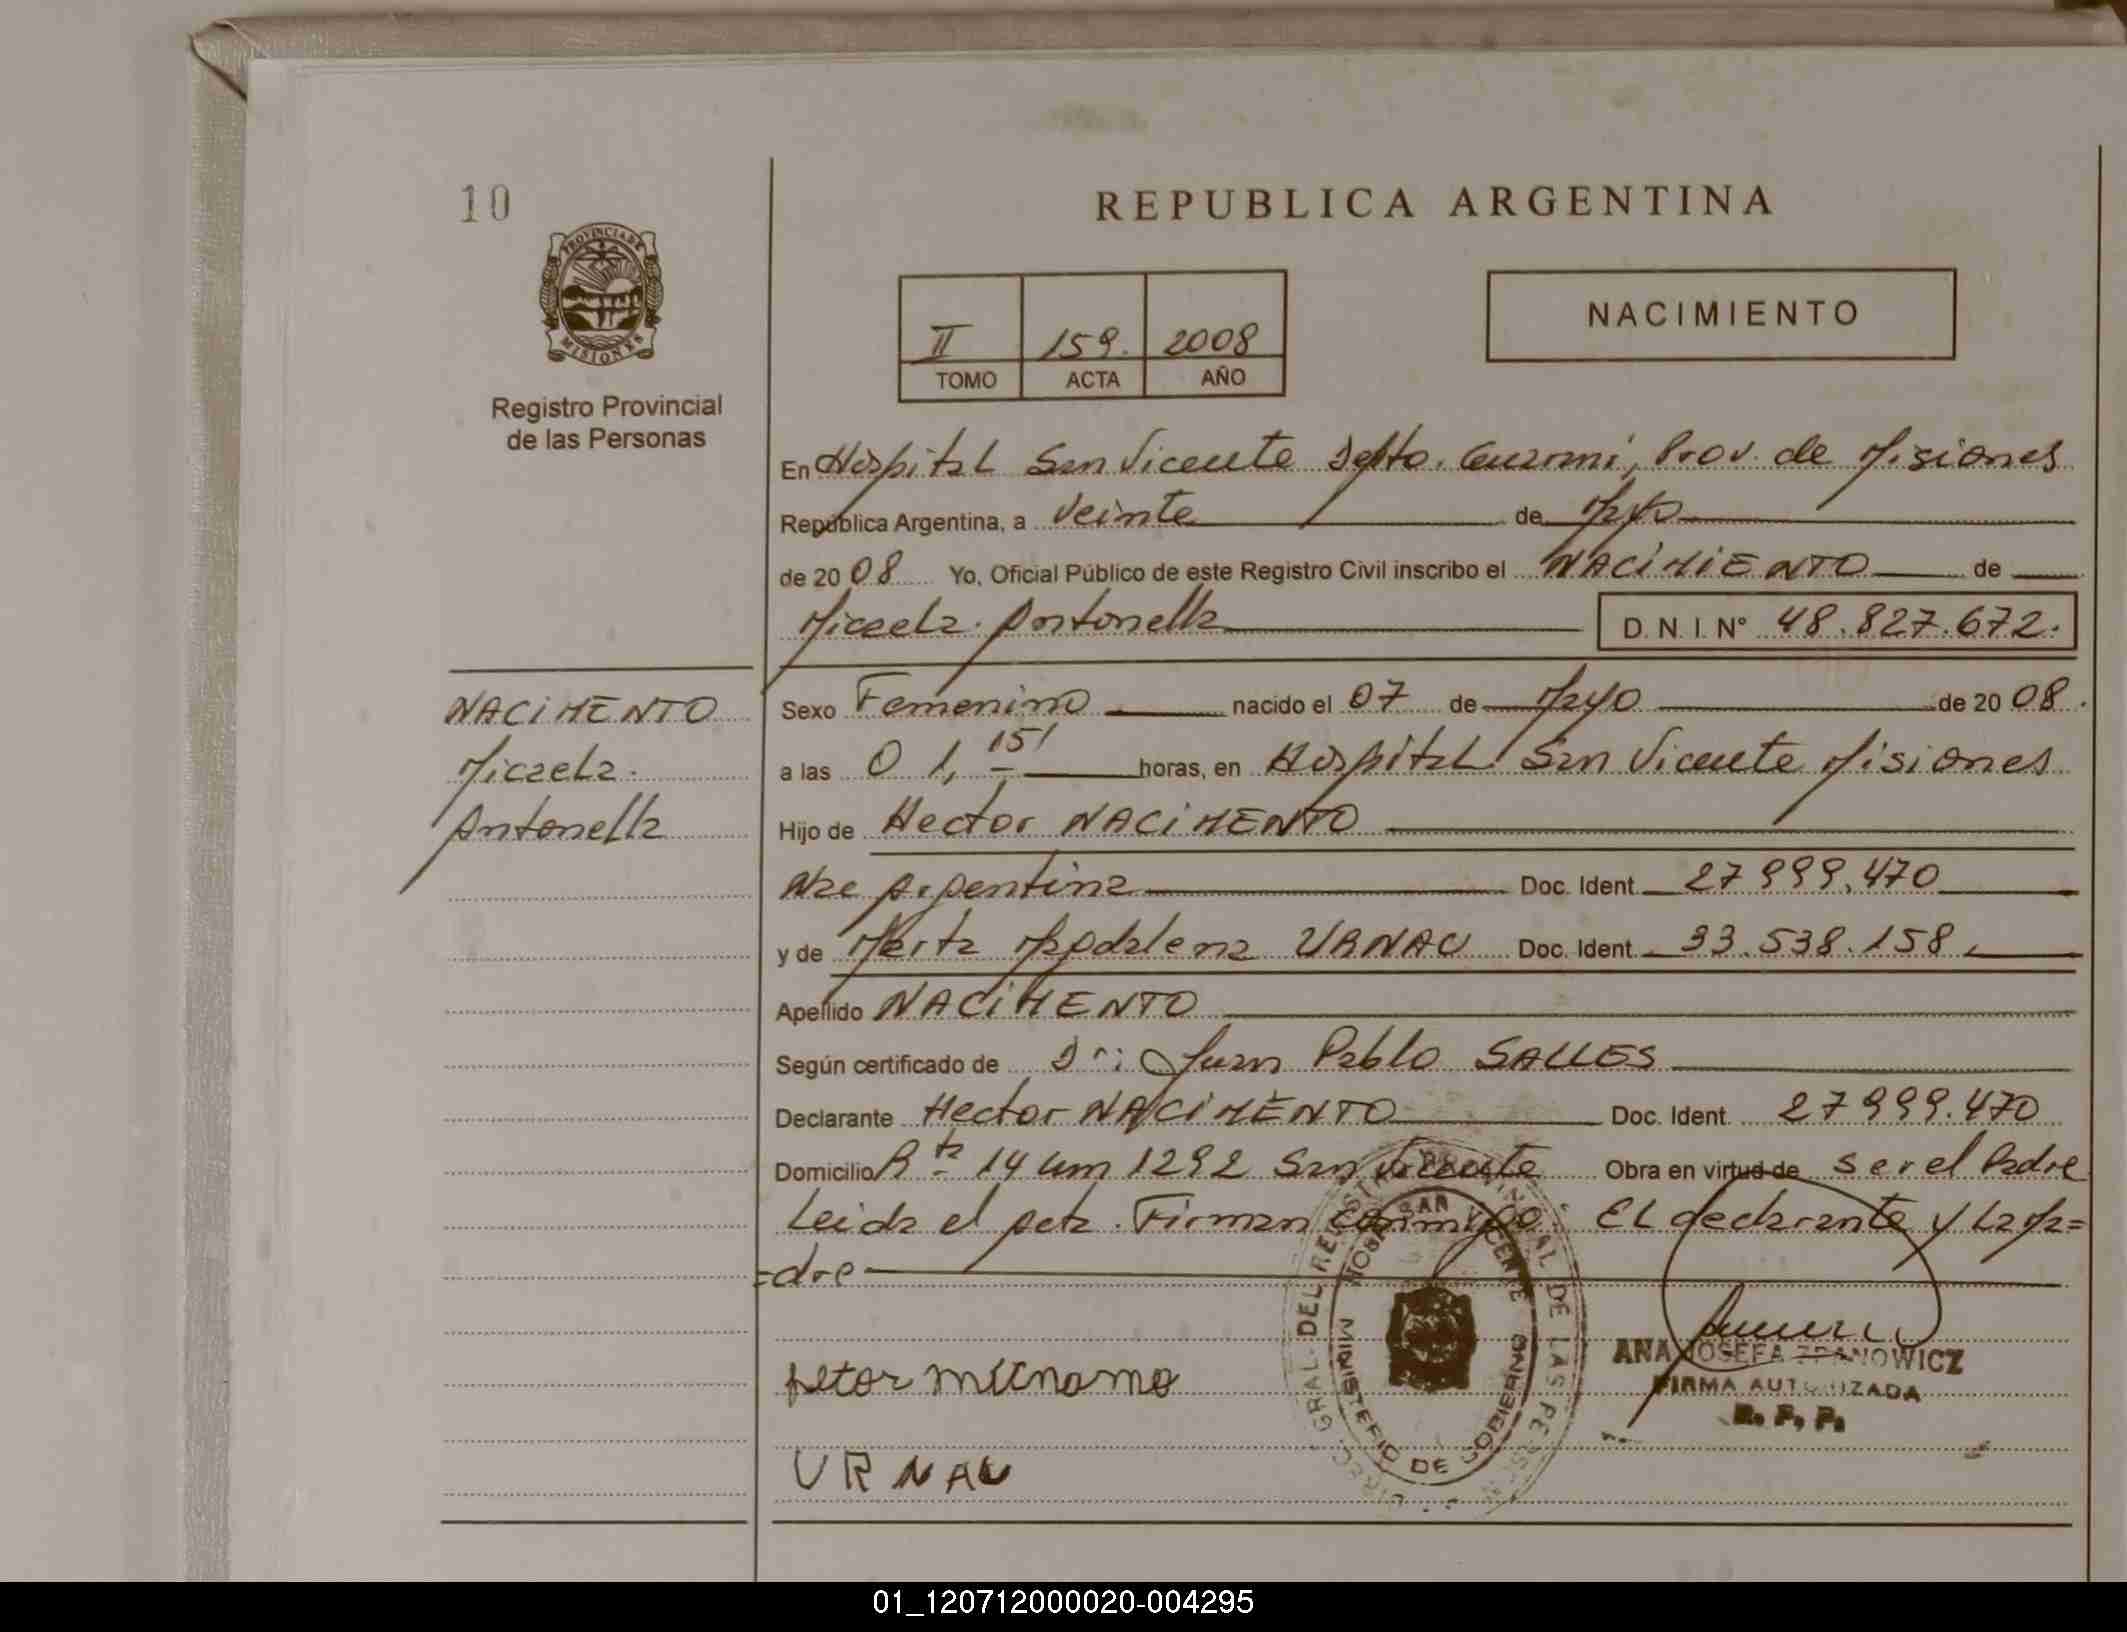 10
REPUBLICA ARGENTINA
PROVINCIA DE
MISIONES
Registro Provincial
de las Personas
II 159. 2008
TOMO ACTA AÑO
NACIMIENTO
En Hospital San Vicente Dpto. Guarani, Prov. de Misiones
Republica Argentina, a Veinte de Mayo
de 2008 Yo, Oficial Público de este Registro Civil inscribo el NACIMIENTO de
Micaela Antonella D. N. I. Nº 48.827.672.
NACIMENTO
Micaela
Antonella
Sexo Femenino nacido el 07 de Mayo de 2008.
a las 01,15' horas, en Hospital San Vicente Misiones
Hijo de Hector NACIMENTO
Nac Argentina Doc. Ident. 27999.470
y de Marta Magdalena URNAU Doc. Ident. 33.538.158
Apellido NACIMENTO
Según certificado de Dr: Juan Pablo SALLES
Declarante Hector NACIMENTO Doc. Ident. 27999.470
Domicilio Rta 14 Km 1292 San Vicente Obra en virtud de ser el Padre
Leida el acta. Firman conmigo: El declarante y la Ma=
=dre
DIREC. GRAL. DEL REGISTRO PROVINCIAL DE LAS PERSONAS
SAN VICENTE
MINISTERIO DE GOBIERNO
ANA JOSEFA ZDANOWICZ
FIRMA AUTORIZADA
R. P. P.
URNAU
01_120712000020-004295